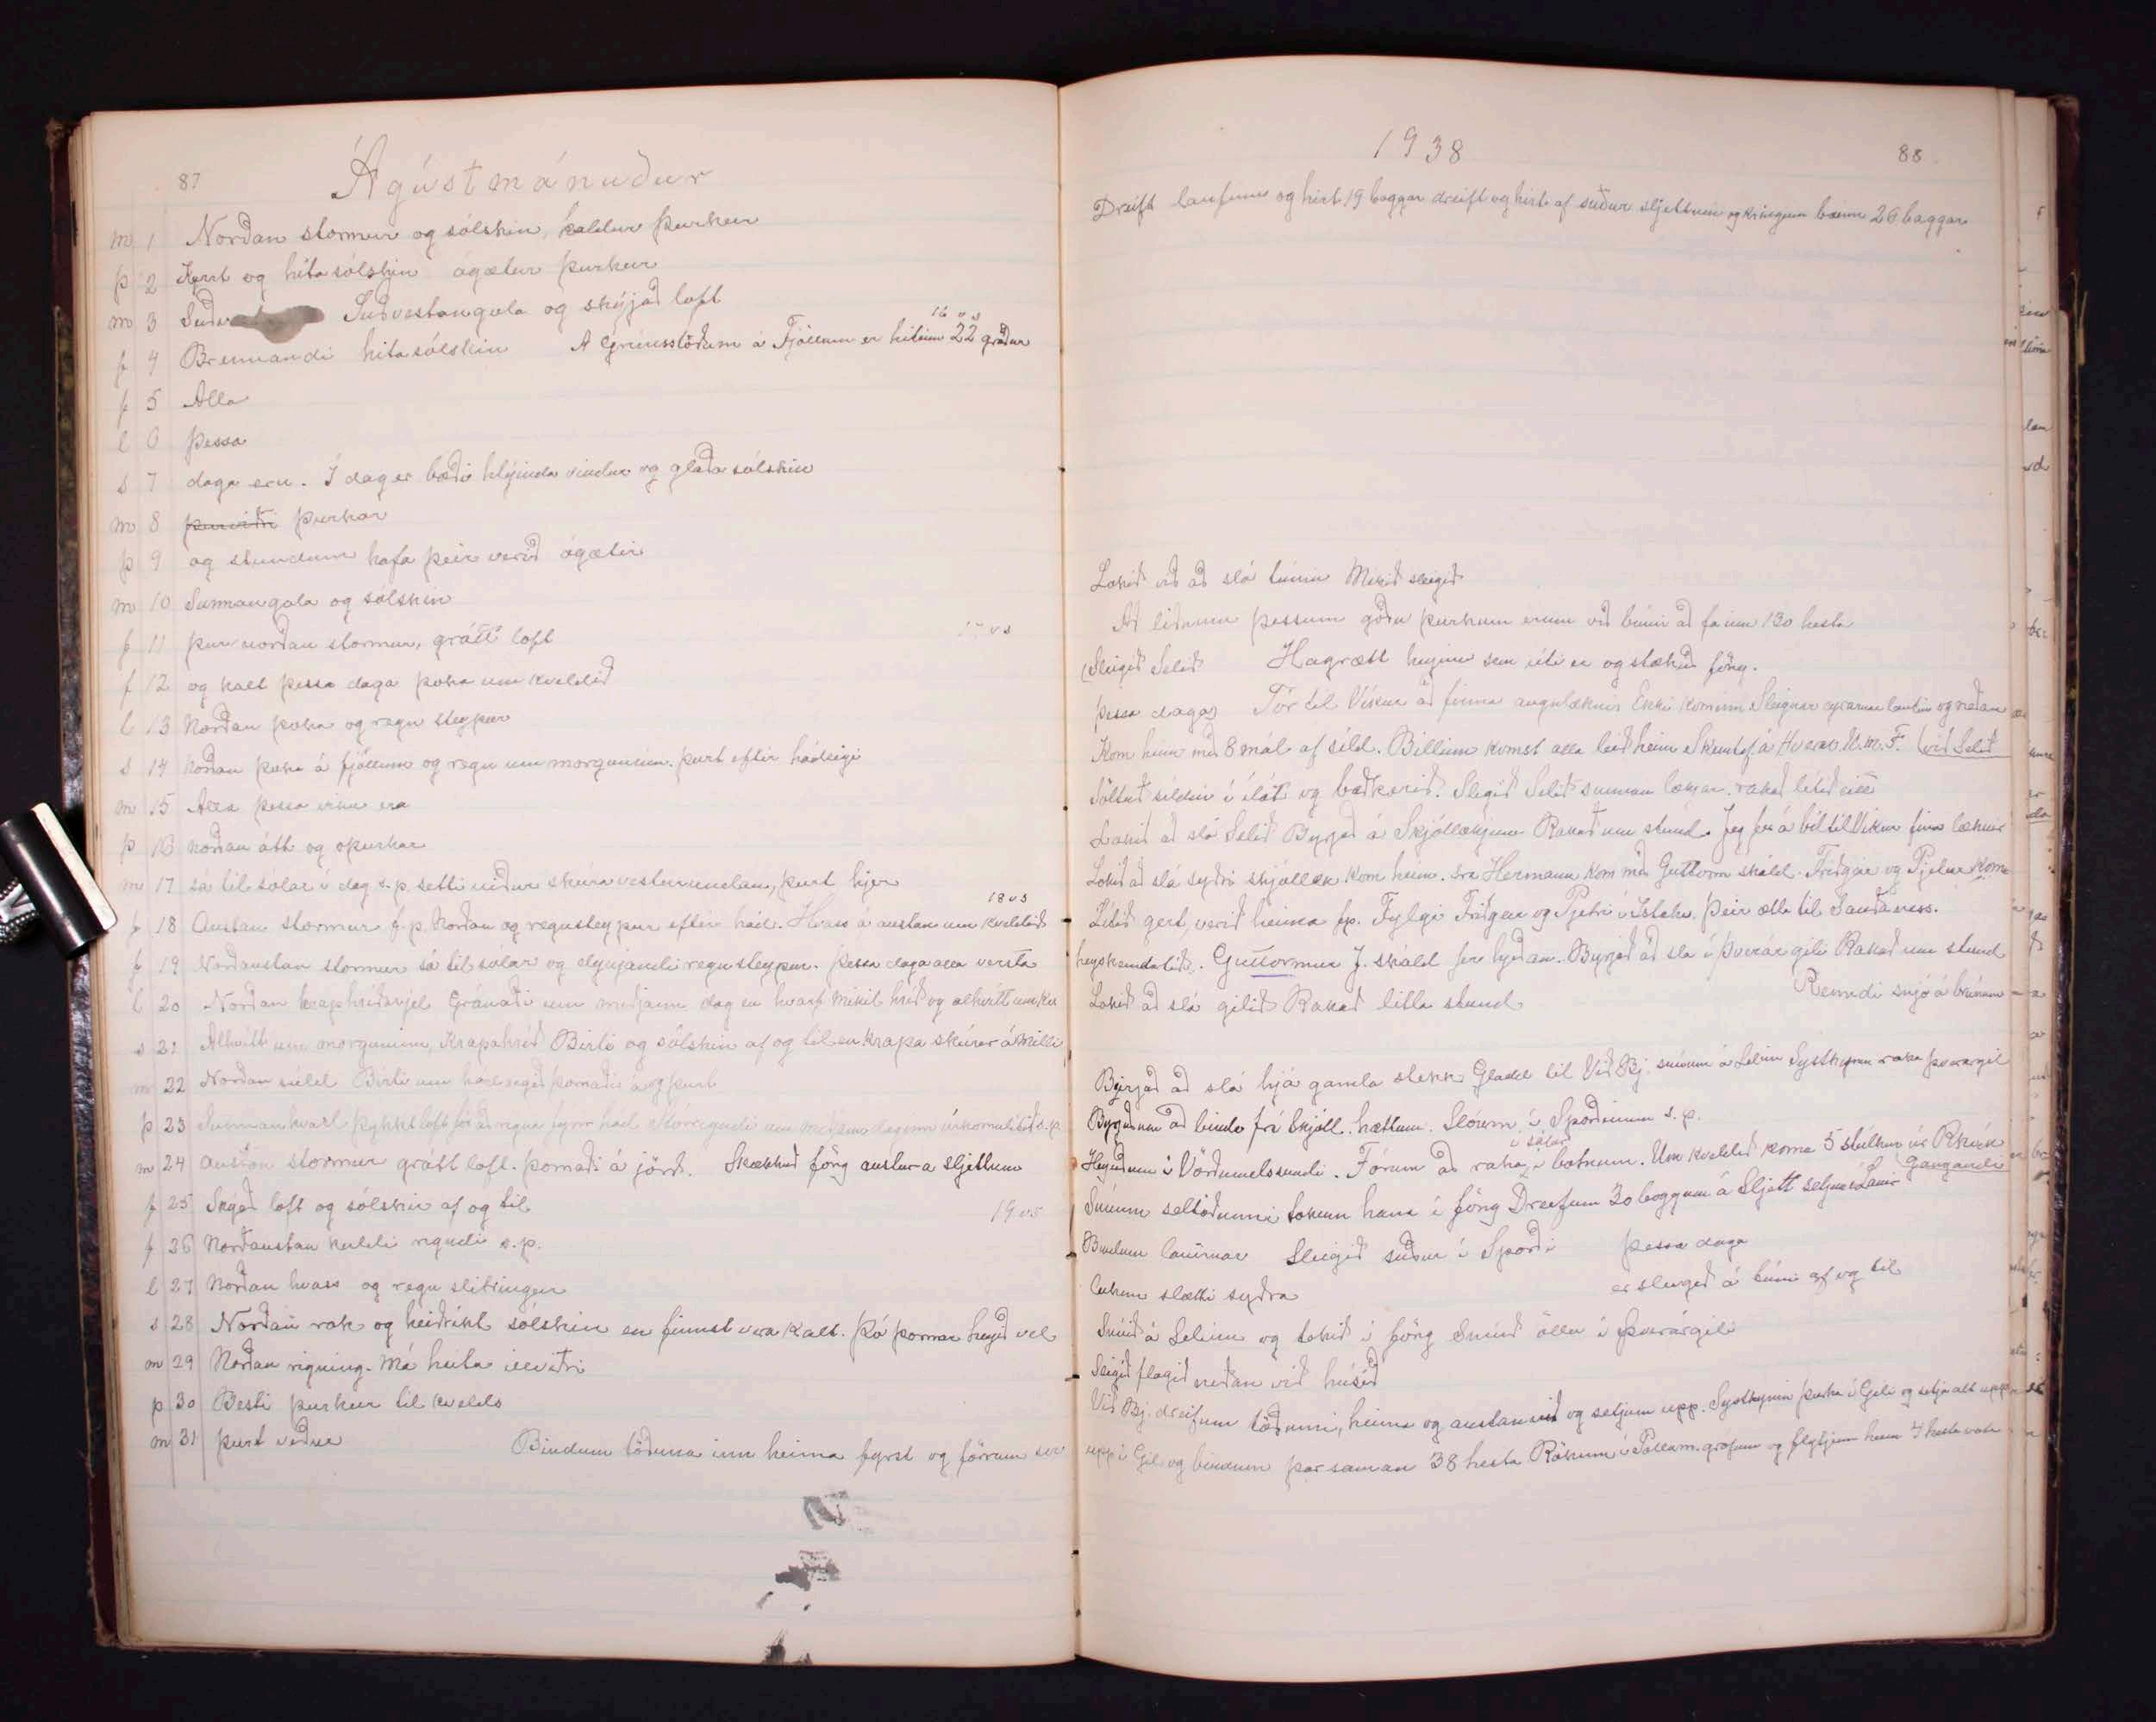 87
Ágústmánuður
m 1 Norðan stormur og sólskin, kaldur þurkur
þ 2 Kyrt og hita sólskin ágætur þurkur
m 3 Suðvestangola og skýjað loft
16 v s
f 4 Brennandi hita sólskin Á Grímsstöðum á Fjöllum er hitinn 22 gráður
f 5 Alla
l 6 þessa
s 7 daga eru. Í dag er bæði hlýinda vindur og glaða sólskin
m 8 þurviðri þurkar
þ 9 og stundum hafa þeir verið ágætir
m 10 Sunnangola og sólskin
17 v s
f 11 þur norðan stormur, grátt loft
f 12 og kalt þessa daga þoka um kveldið
l 13 Norðan þoka og regn steypur
s 14 norðan þoka á fjöllum og regn um morguninn. þurt eftir hádeigi
m 15 Alla þessa viku era
þ 16 norðan átt og óþurkar
m 17 sá til sólar í dag s.p. setti niður skúra vestanundan, þurt hjer
18 v s
f 18 Austan stormur f.p. Norðan og regnsteypur eftir hád. Hvass á austan um kveldið
f 19 Norðaustan stormur sá til sólar og dynjandi regnsteypur. þessa daga alla versta
l 20 Norðan kraphríðarjel Gránaði um miðjann dag en hvarf mikil hríð og alhvítt um kv
s 21 Alhvítt um morguninn, Krapahríð Birti og sólskin af og til en krapa skúrar á milli
m 22 Norðan súld Birti um hádeigið þornaði á og þurt
þ 23 Sunnan hvast þykkt loft fór að regna fyrir hád Stórrigndi um miðjan daginn úrkomulítið s.p.
m 24 austan stormur grátt loft. þornaði á jörð. Stækkuð föng austur a sljettum
f 25 Skýað loft og sólskin af og til
19 v s
f 26 Norðaustan kuldi rigndi s.p.
l 27 Norðan hvass og regn slitringur
s 28 Norðan rok og heiðríkt sólskin en finnst vera kalt. Þó þornar heyið vel
m 29 Norðan rigning. Má heita illviðri
þ 30 Besti þurkur til kvelds
m 31 þurt veður Bindum töðuna inn heima fyrst og förum svo
1938
88
Dreift laufinu og hirt 19 baggar dreift og hirt af suður sljettum og kringum bæinn 26 baggar
Lokið við að slá túnin Mikið sleigið
Að liðnum þessum góðu þurkum erum við búin að fá inn 130 hesta
(Sleigið Selið Hagrætt heyinu sem úti er og stækuð föng.
þessa daga) Fór til Víkur að finna augnlæknir Ekki kominn Sleignar eyrarnar lautin og neðan
Kom heim með 8 mál af síld. Billinn komst alla leið heim Skemtuf á Hverav. U.M.F. (við Selið
Söltuð síldin í ílát og baðkerið. Slegið Selið sunnan lækjar. rakað lítið eitt
Lokið að slá Selið Byrjað á Skjóllækjum Rakað um stund. Jeg fer á bíl til Víkur finn læknir
Lokið að slá syðri skjóllæk kom heim. sra Hermann kom með Guttorm skáld. Friðgeir og Pjetur koma
Lítið gert, verið heima fp. Fylgi Friðgeir og Pjetri í Ístöku. Þeir ætla til Sauðaness.
heyskendatíð. Guttormur J. skáld fer hjeðan. Byrjað að slá í þverárgili Rakað um stund
Lokið að slá gilið Rakað litla stund Renndi snjó á brúnum
Byrjað að slá hjá gamla stekk Gladdi til Við Bj. snúum á Selinu Systkynin raka þverárgil
Byrjuðum að binda frá Skjóll. hættum. Slóum í Sporðinum s.p.
í sátur
Heyuðum í Vörðumelssundi. Fórum að raka í botnum. Um kveldið koma 5 stúlkur úr Rkvík
Gangandi
Snúum seltöðunni tókum hana í föng Dreifum 30 böggum á Sljett setjum í Lanir
Bindum lanirnar Sleigið suður í Sporði þessa daga
lukum slætti syðra er sleigið á túni af og til
Snúið á Selinu og tekið í föng Snúið öllu í þverárgili
Sleigið flagið neðan við húsið
Við Bj. dreifum töðunni, heima og austan við og setjum upp. Systkynin þurka í Gili og setja alt upp
upp í Gil og bindum þar saman 38 hesta Rökum í Pöllum-grofum og flytjum heim 4 hesta